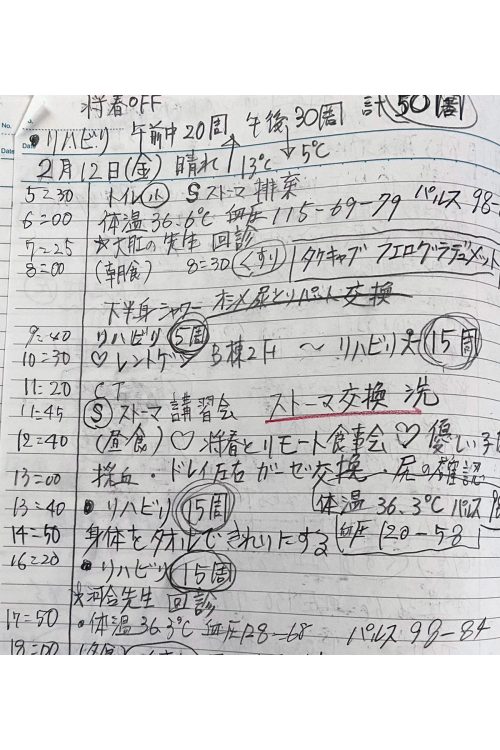 No.
Date
将春OFF
リハビリ 午前中20周 午後30周 計50周
2月12日(金) 晴れ ↑13℃ ↓5℃
5=30 トイレ(小) Sストーマ 排棄
6=00 体温36.6℃ 血圧115-69-79 パルス98-
7=25 ★大肛の先生 回診
8=00 (朝食) 8=30 くすり タケキャブ フエログラデュメット
下半身シャワー オシメ 尿とりパット 交換
9=40 リハビリ 5周
10=30 ♡レントゲン B棟2F ~ リハビリ 15周
11=20 CT
11=45 Sストーマ 講習会 ストーマ交換 洗
12=40 (昼食)♡将春とリモート食事会♡ 優しい
13=00 採血・ドレイン左右 ガーゼ交換・尻の確認
体温 36.3℃ パルス
13=40 ・リハビリ 15周
血圧 120-58
14=50 身体をタオルできれいにする
16=20 ・リハビリ 15周
★河合先生 回診
17=50 ・体温36.3℃ 血圧128-68 パルス 98-84
18=00